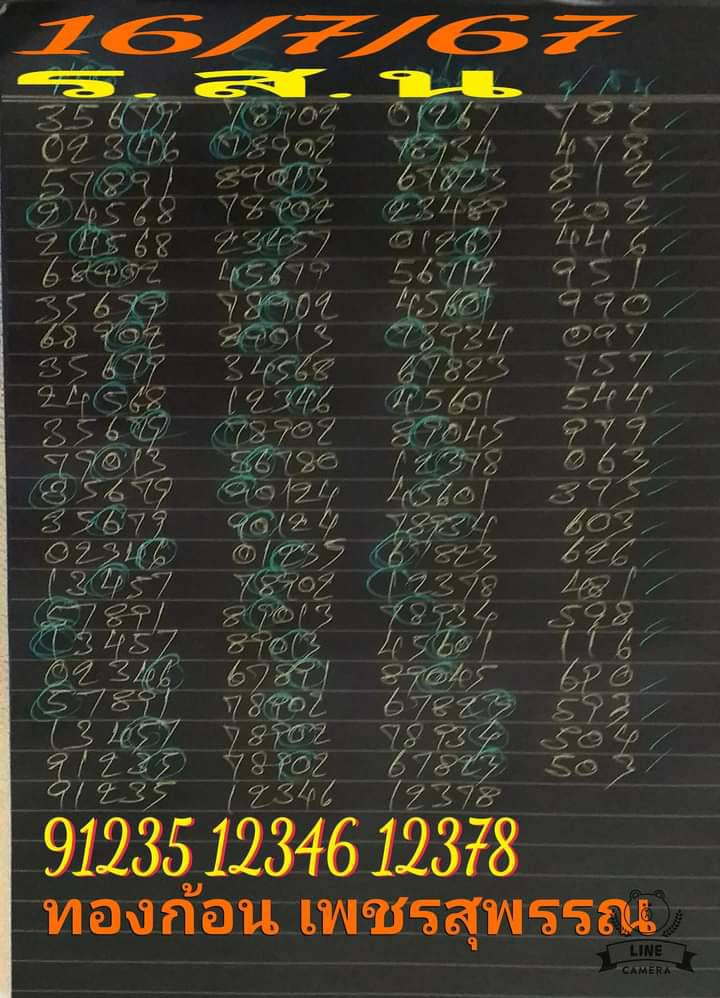 16/7/67
ร.ส.น
35679 78902 01267 782
02346 78902 78934 478
57891 89013 67823 812
24568 78902 23489 202
24568 23457 01267 446
68902 45679 56712 951
35679 78902 45601 990
68902 89013 78934 097
35679 34568 67823 757
24568 12346 45601 544
35679 78902 89045 979
79013 56780 12378 063
35679 90124 45601 395
35679 90124 78934 603
02346 01235 67823 626
13457 78902 12378 481
57891 89013 78934 598
13457 89013 45601 116
02346 67891 89045 690
57891 78902 67823 593
13457 78902 78934 504
91235 78902 67823 503
91235 12346 12378
91235 12346 12378
ทองก้อน เพชรสุพรรณ
LINE
CAMERA